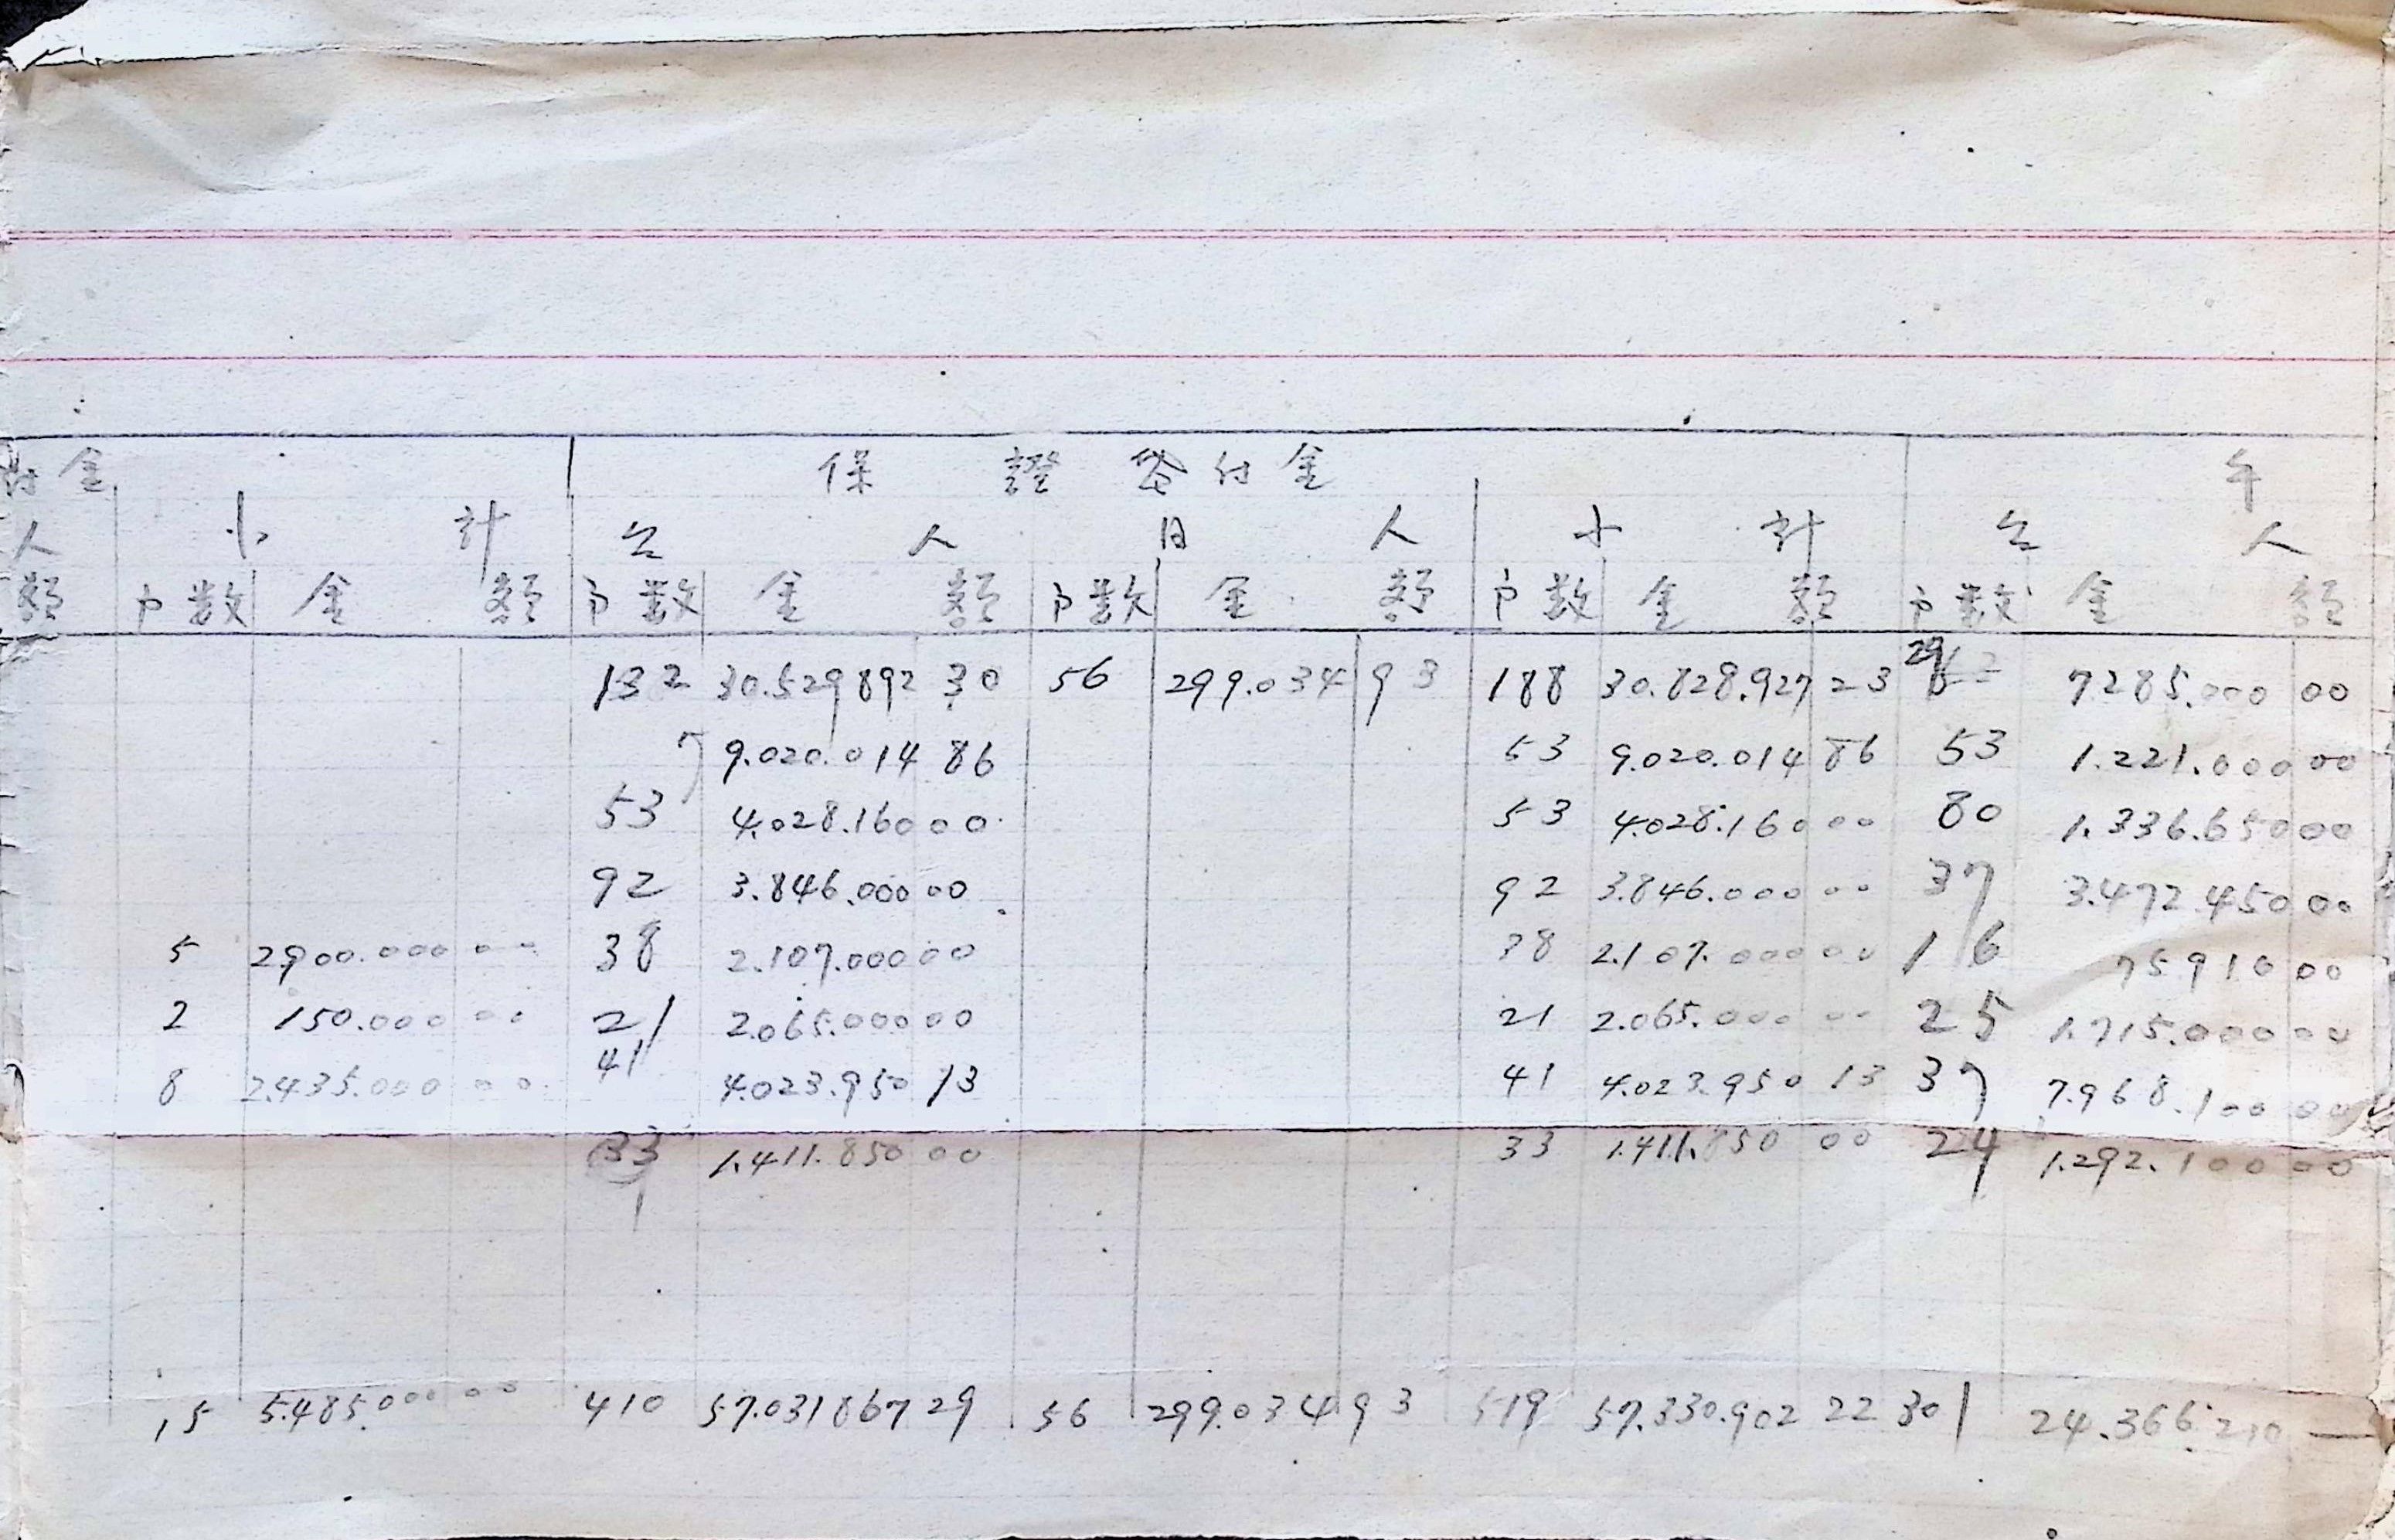 付金 保證貸付金 年
人 小計 公人 日人 小計 公人
額 户数 金額 户数 金額 户数 金額 户数 金額 户数 金額
132 30.529892 30 56 299.034 93 188 30.828.927 23 29 7285.000 00
7 9.020.014 86 53 9.020.014 86 53 1.221.000 00
53 4.028.160 00 53 4.028.160 00 80 1.336.650 00
92 3.846.000 00 92 3.846.000 00 37 3.472.450 00
5 2900.000 00 38 2.107.000 00 38 2.107.000 00 16 75910 00
2 150.000 00 21 2.065.000 00 21 2.065.000 00 25 1.715.000 00
8 2.435.000 00 41 4.023.950 13 41 4.023.950 13 37 7.968.100 00
33 1.411.850 00 33 1.411.850 00 24 1.292.100 00
15 5.485.000 00 410 57.031867 29 56 299.034 93 519 57.330.902 22 301 24.366.210 —